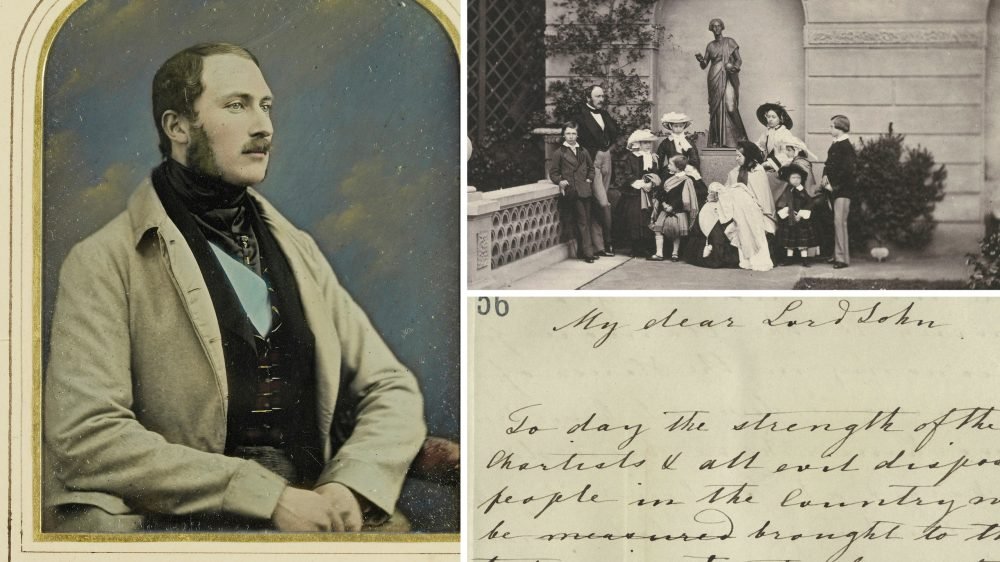 56
My dear Lord John
To day the strength of the
Chartists & all evil dispos
people in the Country
be measured brought to